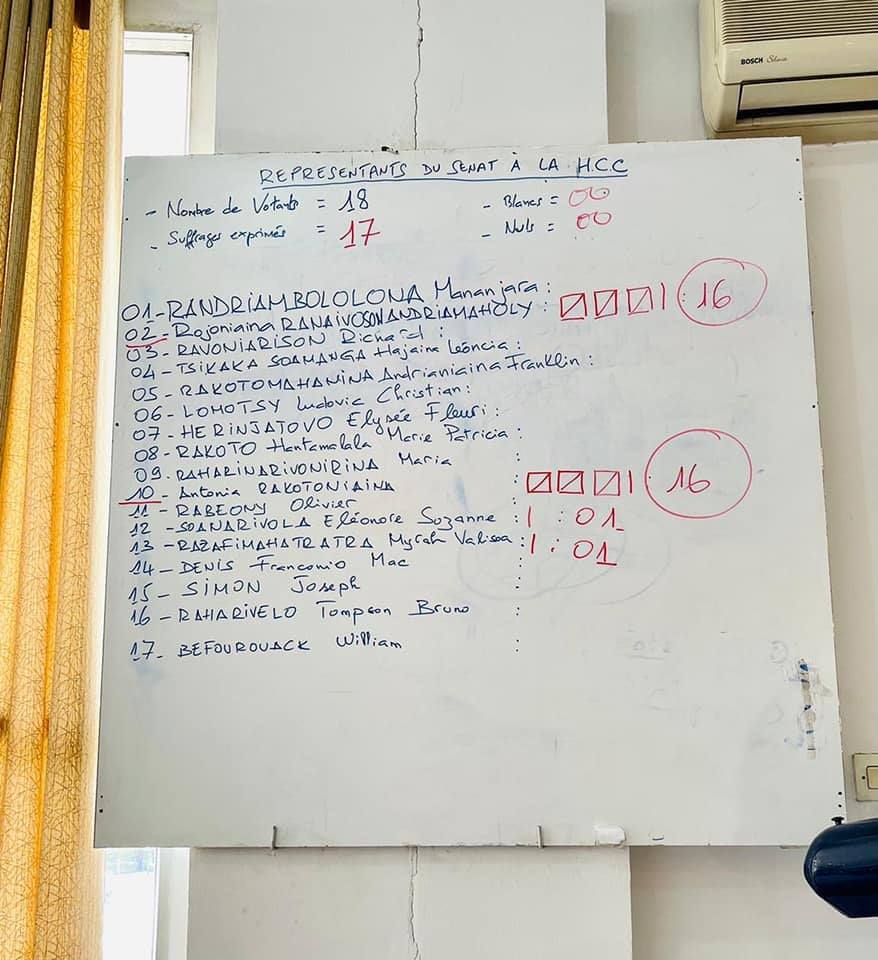 BOSCH
REPRESENTANTS DU SENAT À LA H.C.C
- Nombre de Votants = 18
- Blancs = 00
- Suffrages exprimés = 17
- Nuls = 00
01 - RANDRIAMBOLOLONA Mananjara :
02 - Rojoniaina RANAIVOSON ANDRIAMAHOLY : : 16
03 - RAVONIARISON Richard :
04 - TSIKAKA SOAMANGA Hajaina Léoncia :
05 - RAKOTOMAHANINA Andrianiaina Franklin :
06 - LOMOTSY Ludovic Christian :
07 - HERINJATOVO Elysée Fleuri :
08 - RAKOTO Hantamalala Marie Patricia :
09 - RAHARINARIVONIRINA Maria :
10 - Antonia RAKOTONIAINA : : 16
11 - RABEONY Olivier :
12 - SOANARIVOLA Eléonore Suzanne : | : 01
13 - RAZAFIMAHATRATRA Myrah Valisoa : | : 01
14 - DENIS Franconio Mac :
15 - SIMON Joseph :
16 - RAHARIVELO Tompson Bruno :
17 - BEFOUROUACK William :